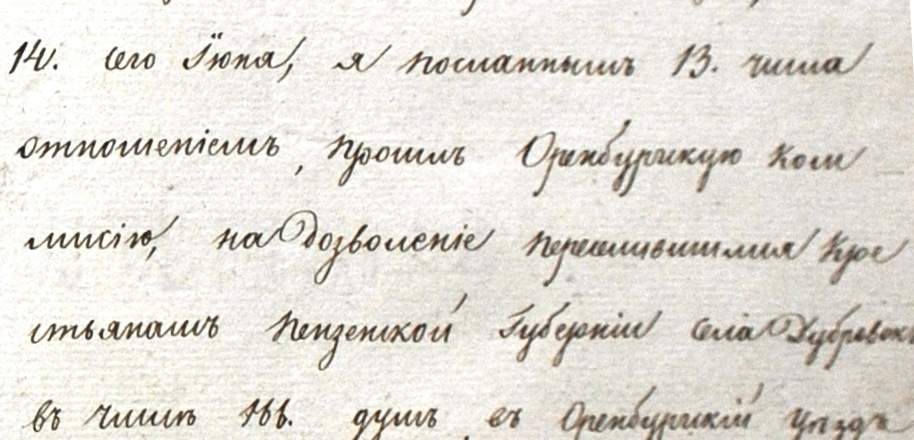 14. сего Іюня, я посланнымъ 13. числа
отношеніемъ, просилъ Оренбургскую Ком
мисію, на дозволеніе переселившимся Кре
стьянамъ Пензенской Губерніи села Дубровокъ
въ числѣ 166. душъ въ Оренбургскій уѣздъ